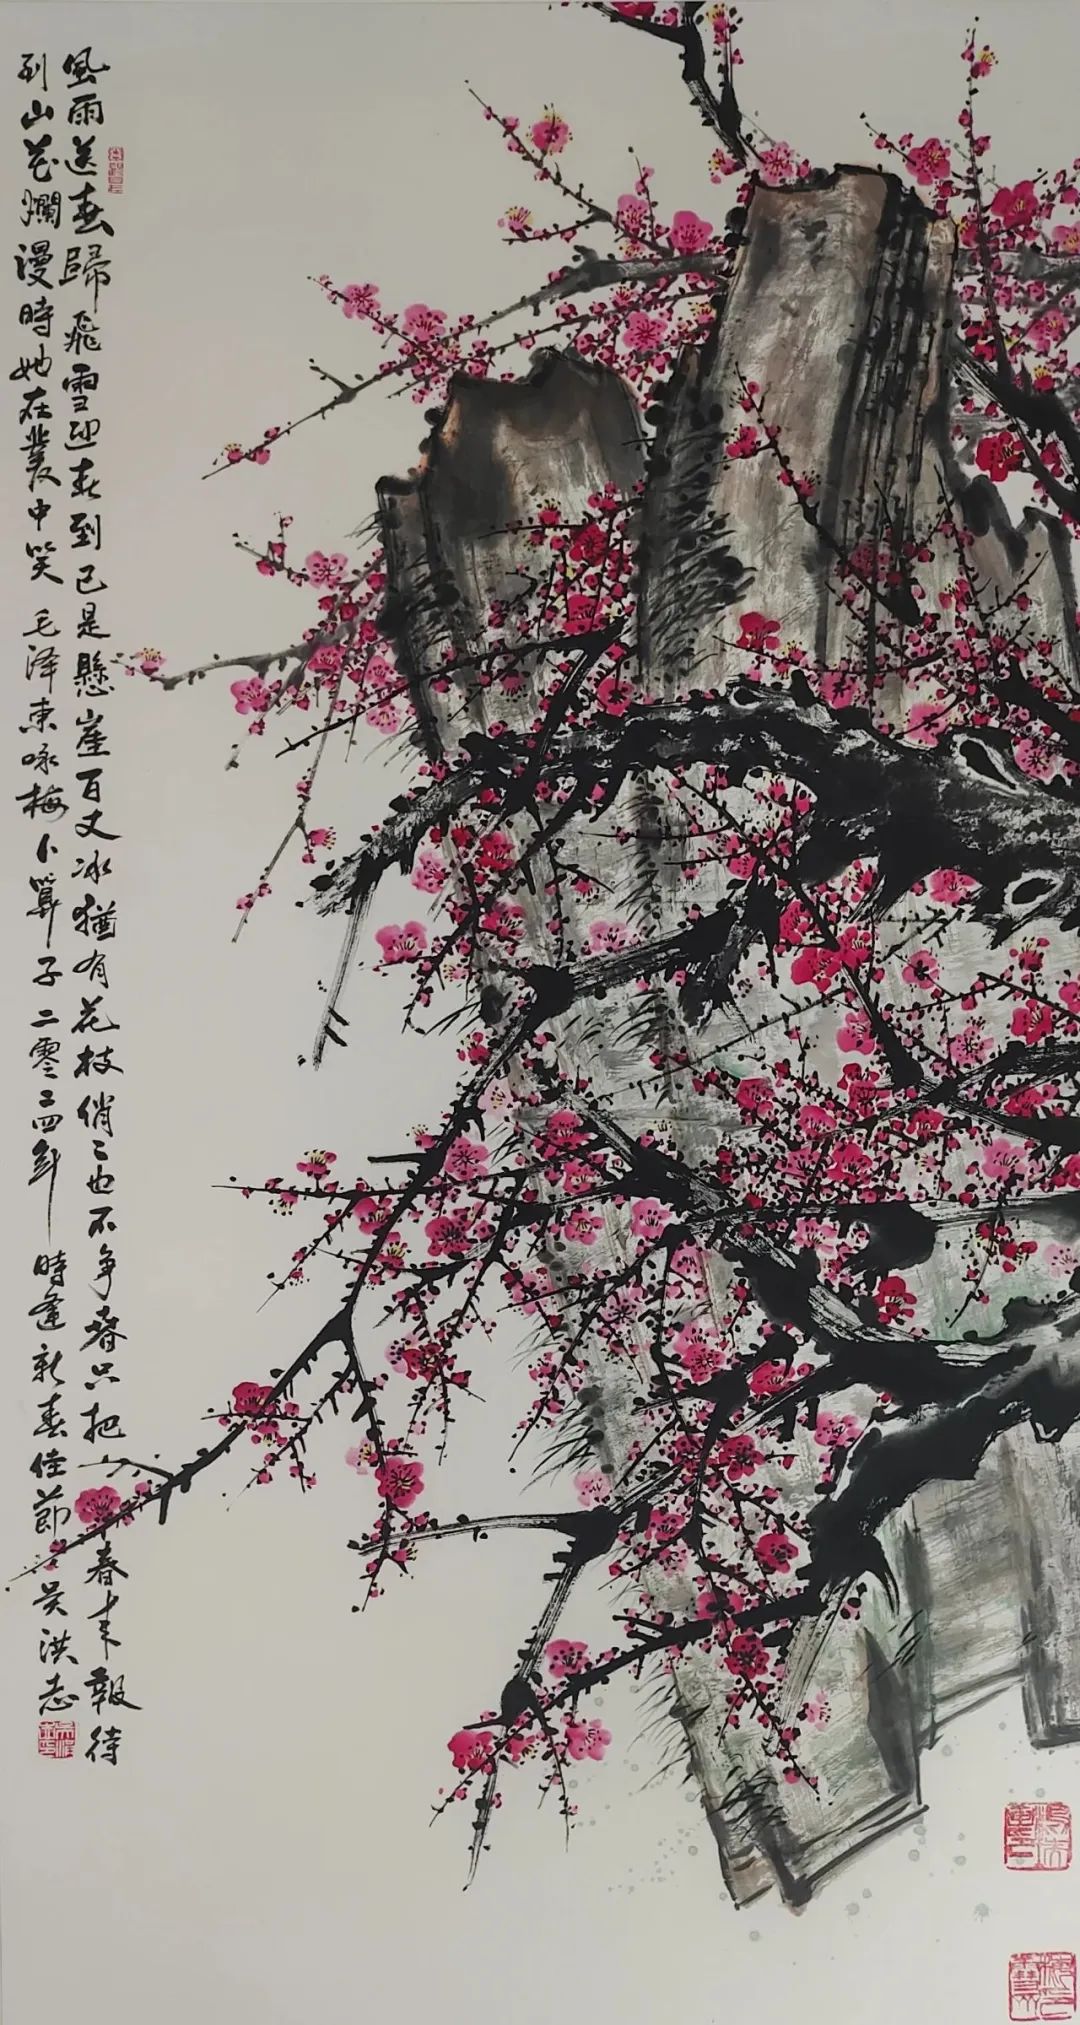 風雨送春歸飛雪迎春到已是懸崖百丈冰猶有花枝俏〻也不争春只把春来報待
到山花爛漫時她在叢中笑 毛泽東咏梅卜算子二零二四年時逢新春佳節吴洪志